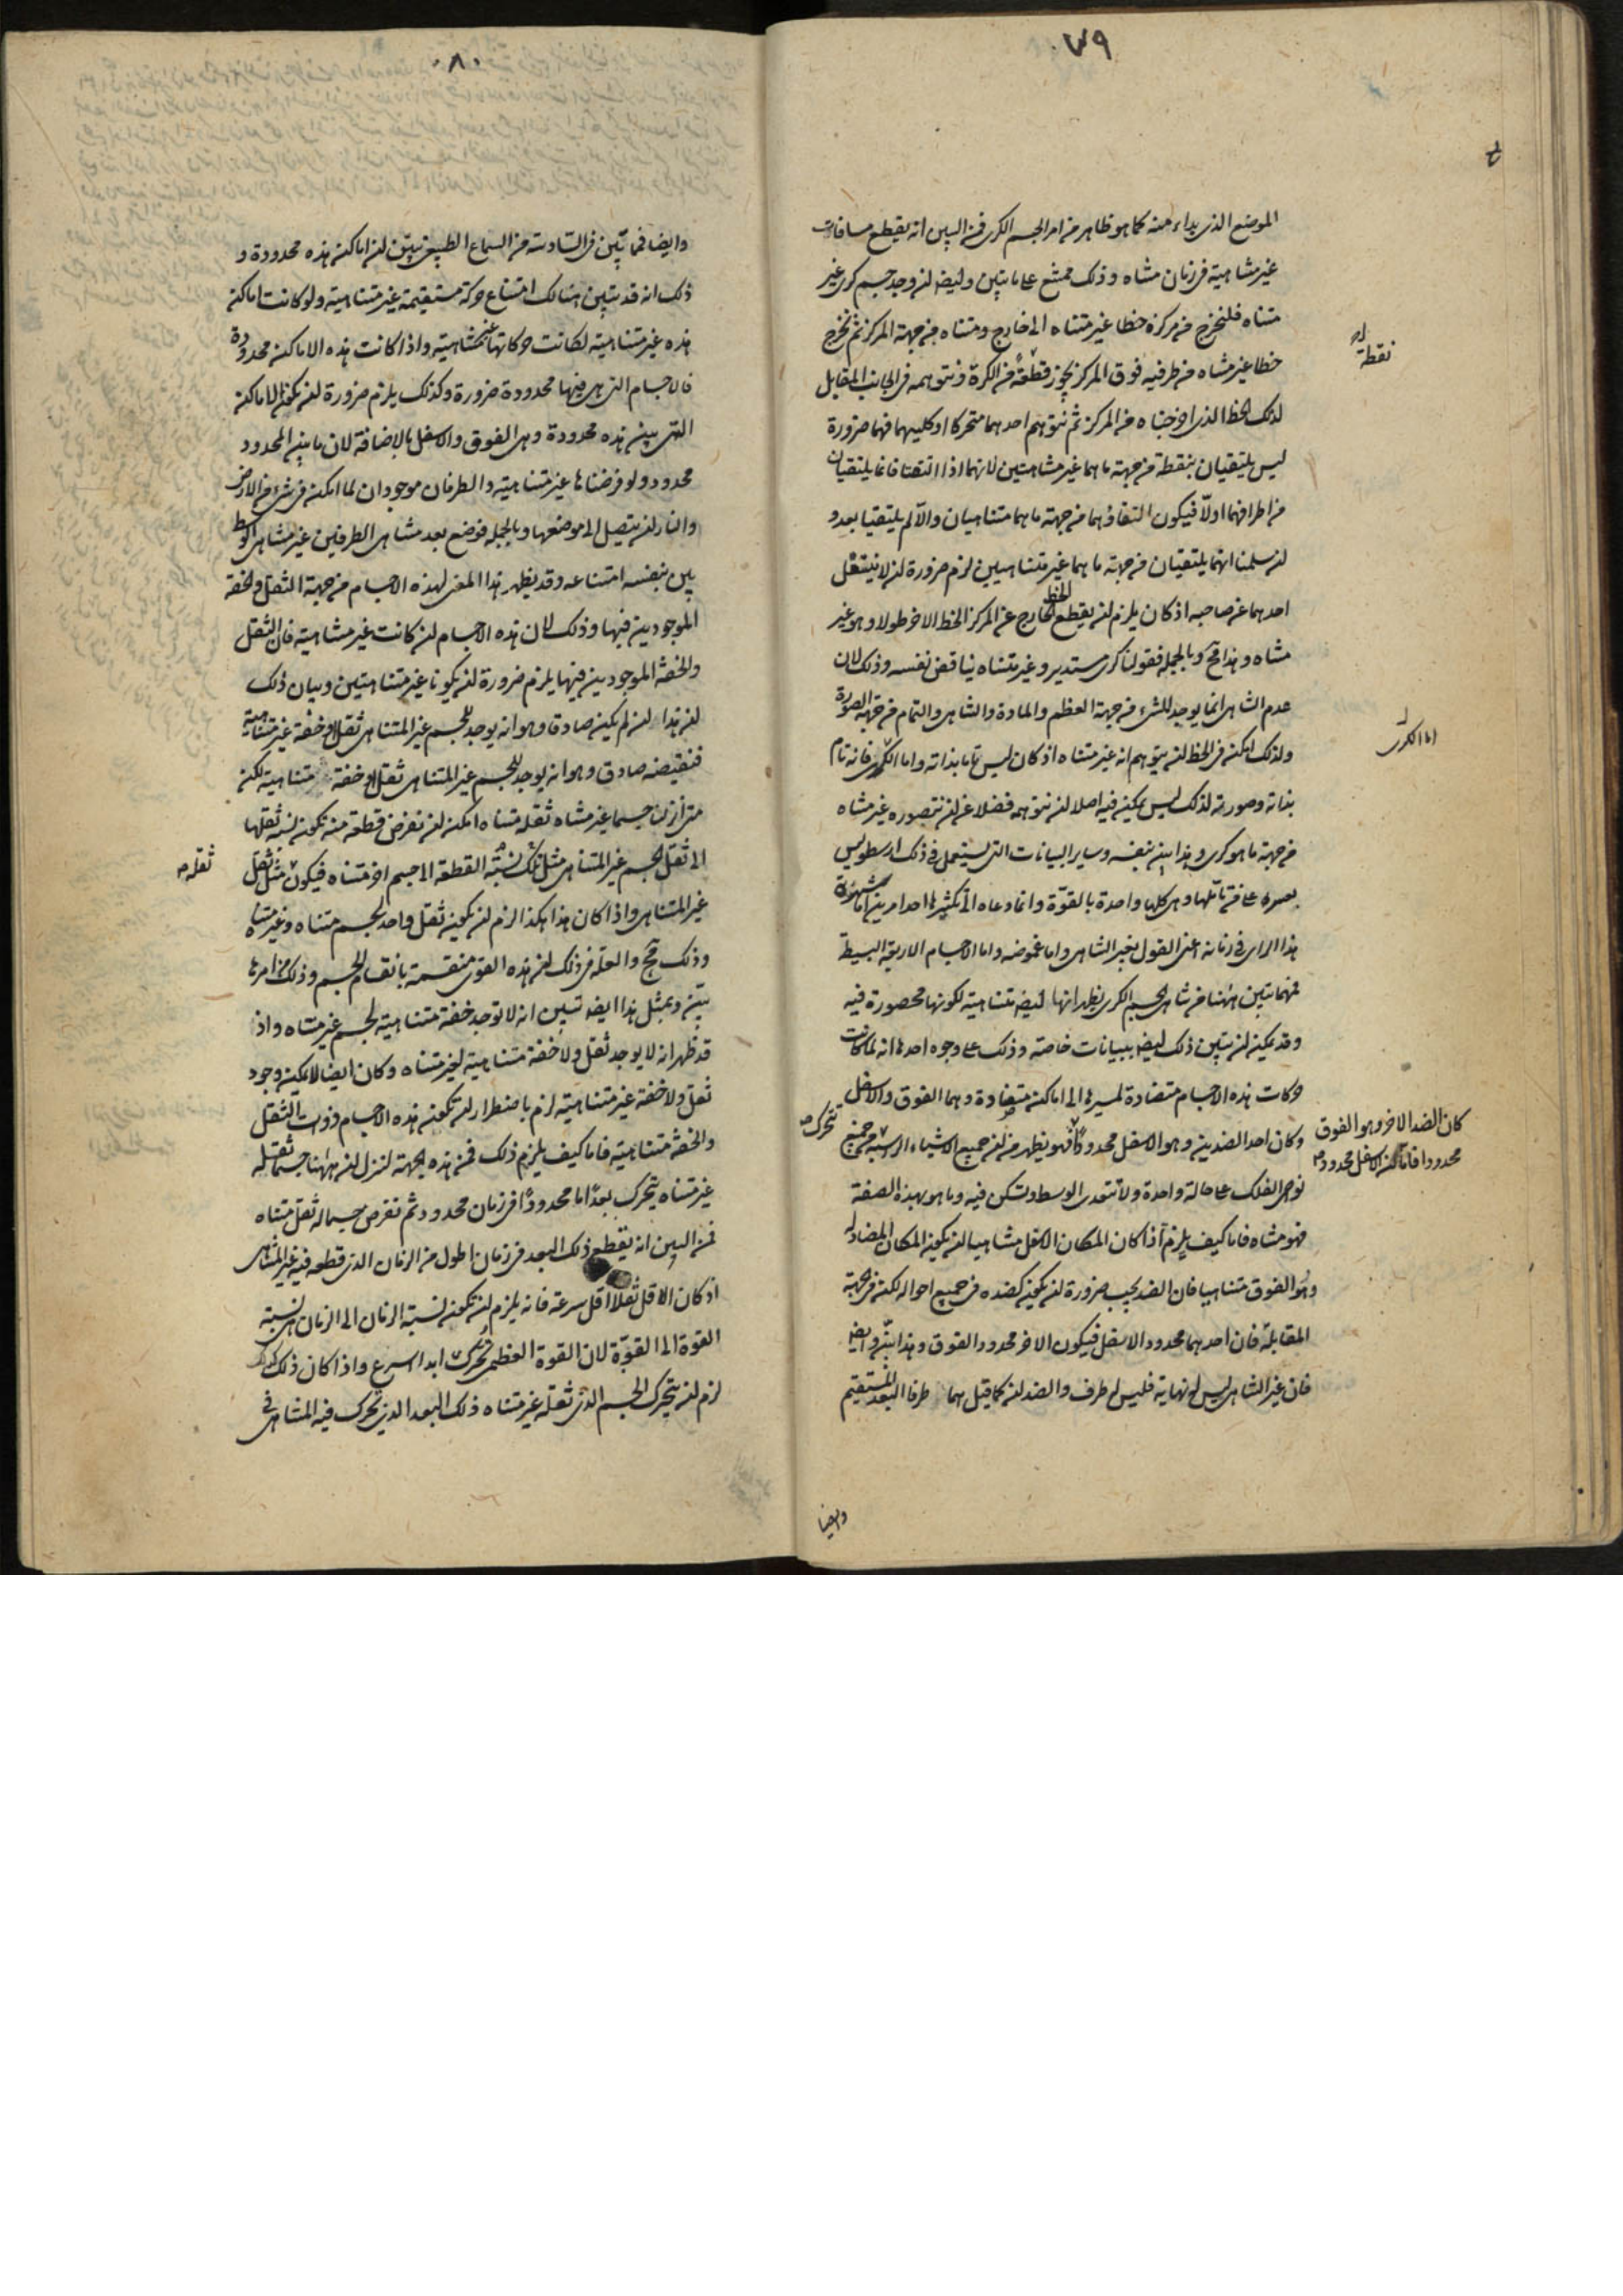 ٧٩
الموضع الذى بداء منه كما هو ظاهر من امر الجسم الكرى فمن البين انه يقطع مسافات
غير متناهية فى زمان متناه وذلك ممتنع على ما تبين وايضا لن وجد جسم كرى غير
متناه فلنخرج من مركزه خطا غير متناه الى خارج ومتناه من جهة المركز ثم نخرج
خطا غير متناه من طرفيه فوق المركز يجوز قطعة من الكرة ونتوهمه فى الجانب المقابل
نقطة
لذلك الخط الذى اخرجناه من المركز ثم نتوهم احدهما متحركا او كليهما فهما ضرورة
ليس يلتقيان بنقطة من جهة ما هما غير متناهيين لانهما اذا التقتا فانما يلتقيان
من اطرافهما اولا فيكون التقاؤهما من جهة ما هما متناهيان والا لم يلتقيا بعد و
لئن سلمنا انهما يلتقيان من جهة ما هما غير متناهيين لزم ضرورة ان لا ينتقل
احدهما عن صاحبه اذ كان يلزم ان يقطع الخط الخارج عن المركز الخط الاخر طولا وهو غير
متناه وهذا مح وبالجملة فقولنا كرى مستدير وغير متناه يناقض نفسه وذلك لان
عدم التناهى انما يوجد للشىء من جهة العظم والمادة والتناهى والتمام من جهة الصورة
ولذلك امكن فى الخط ان يتوهم انه غير متناه اذ كان ليس تاما بذاته واما الكرى فانه تام
اما الكرى
بذاته وصورته لذلك ليس يمكن فيه اصلا ان نتوهمه فضلا عن ان نتصوره غير متناه
من جهة ما هو كرى وهذا بين بنفسه وساير البيانات التى يستعمل فى ذلك ارسطو ليس
يعسر على من تاملها وهى كلها واحدة بالقوة وانما دعاه الى تكثيرها احد امرين اما شهرة
هذا الراى فى زمانه اعنى القول بغير التناهى واما غموضه واما الاجسام الاربعة البسيطة
فهما تبين ههنا من تناهى الجسم الكرى يظهر انها ايضا متناهية لكونها محصورة فيه
وقد يمكن ان يتبين ذلك ايضا ببيانات خاصة وذلك على وجوه احدها انه لما كانت
حركات هذه الاجسام متضادة لمسيرها الى اماكن متضادة وهما الفوق والاسفل
وكان احد الضدين وهو الاسفل محدودا فهو يظهر من ان جميع الاشياء الراسبة من جميع
كان الضد الاخر وهو الفوق
محدودا فاما كون الاسفل محدودا
تتحرك
نواحى الفلك على حالة واحدة ولا تتعدى الوسط وتسكن فيه وما هو بهذه الصفة
فهو متناه فاما كيف يلزم اذا كان المكان الاسفل متناهيا ان يكون المكان المضاد له
وهو الفوق متناهيا فان الضد يجب ضرورة ان يكون كضده فى جميع احواله لكن فى جهة
المقابلة فان احدهما محدود الاسفل فيكون الاخر محدود الفوق وهذا بين وايضا
فان غير التناهى ليس له نهاية فليس له طرف والضد ان كما قيل هما طرفا البعد المستقيم
وايضا
٨٠
وايضا فما تبين فى السادسة من السماع الطبيعى تبين ان اماكن هذه محدودة و
ذلك انه قد تبين هنالك امتناع حركة مستقيمة غير متناهية ولو كانت اماكن
هذه غير متناهية لكانت حركاتها غير متناهية واذا كانت هذه الاماكن محدودة
فالاجسام التى هى فيها محدودة ضرورة وكذلك يلزم ضرورة ان تكون الاماكن
التى بين هذه محدودة وهى الفوق والاسفل بالاضافة لان ما بين المحدود
محدود ولو فرضناها غير متناهية والطرفان موجودان لما امكن فى شىء من الارض
والنار ان يتصل الى موضعها وبالجملة فوضع بعد متناهى الطرفين غير متناهى الوسط
بين بنفسه امتناعه وقد يظهر هذا المعنى لهذه الاجسام من جهة الثقل والخفة
الموجودين فيها وذلك لان هذه الاجسام ان كانت غير متناهية فان الثقل
والخفة الموجودين فيها يلزم ضرورة ان يكونا غير متناهيين وبيان ذلك
ان هذا ان لم يكن صادقا وهو انه يوجد للجسم غير المتناهى ثقل او خفة غير متناهية
فنقيضه صادق وهو انه يوجد للجسم غير المتناهى ثقل او خفة متناهية لكن
متى انزلنا جسما غير متناه ثقله متناه امكن ان نفرض قطعة منه تكون نسبة ثقلها
الى ثقل الجسم غير المتناهى مثل تلك نسبة القطعة الى جسم اخر متناه فيكون مثل ثقل
ثقله
غير المتناهى واذا كان هذا هكذا لزم ان يكون ثقل واحد لجسم متناه وغير متناه
وذلك مح والعلة فى ذلك ان هذه القوى منقسمة بانقسام الجسم وذلك من امرها
بين وبمثل هذا ايضا تبين انه لا توجد خفة متناهية لجسم غير متناه واذ
قد ظهر انه لا يوجد ثقل ولا خفة متناهية لغير متناه وكان ايضا لا يمكن وجود
ثقل ولا خفة غير متناهية لزم باضطرار ان تكون هذه الاجسام ذوات الثقل
والخفة متناهية فاما كيف يلزم ذلك فمن هذه الجهة لننزل ان ههنا جسما ثقله
غير متناه يتحرك بعدا ما محدودا فى زمان محدود ثم نفرض جسما له ثقل متناه
فمن البين انه يقطع ذلك البعد فى زمان اطول من الزمان الذى قطعه فيه غير المتناهى
اذ كان الاقل ثقلا اقل سرعة فانه يلزم ان تكون نسبة الزمان الى الزمان هى نسبة
القوة الى القوة لان القوة العظمى تحرك ابدا اسرع واذا كان ذلك كذلك
لزم ان يتحرك الجسم الذى ثقله غير متناه ذلك البعد الذى تحرك فيه المتناهى فى